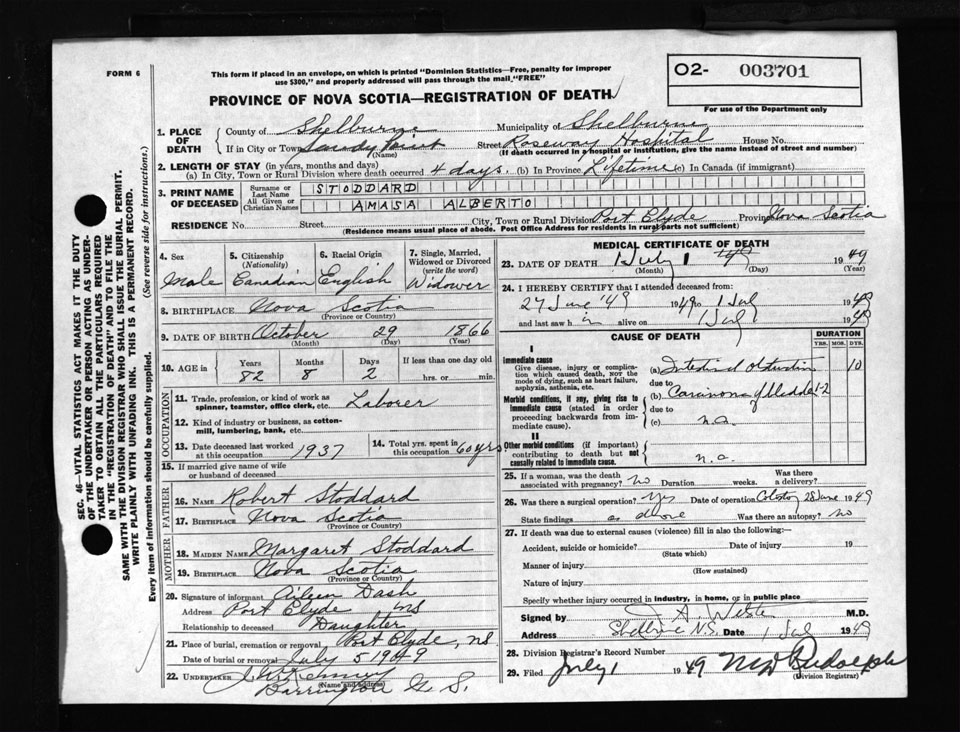 FORM 6
This form if placed in an envelope, on which is printed "Dominion Statistics—Free, penalty for improper
use $300," and properly addressed will pass through the mail "FREE"
PROVINCE OF NOVA SCOTIA—REGISTRATION OF DEATH
O2- 003701
For use of the Department only
SEC. 46—VITAL STATISTICS ACT MAKES IT THE DUTY
OF THE UNDERTAKER OR PERSON ACTING AS UNDER-
TAKER TO OBTAIN ALL THE PARTICULARS REQUIRED
IN THE "REGISTRATION OF DEATH" AND TO FILE THE
SAME WITH THE DIVISION REGISTRAR WHO SHALL ISSUE THE BURIAL PERMIT.
WRITE PLAINLY WITH UNFADING INK. THIS IS A PERMANENT RECORD.
Every item of information should be carefully supplied. (See reverse side for instructions.)
1. PLACE OF DEATH
County of Shelburne Municipality of Shelburne
If in City or Town Sandy Point (Name) Street Roseway Hospital House No.
(If death occurred in a hospital or institution, give the name instead of street and number)
2. LENGTH OF STAY (in years, months and days)
(a) In City, Town or Rural Division where death occurred 4 days. (b) In Province Lifetime (c) In Canada (if immigrant)
3. PRINT NAME OF DECEASED
Surname or Last Name STODDARD
All Given or Christian Names AMASA ALBERTO
RESIDENCE No. Street City, Town or Rural Division Port Clyde Province Nova Scotia
(Residence means usual place of abode. Post Office Address for residents in rural parts not sufficient)
4. Sex Male
5. Citizenship (Nationality) Canadian
6. Racial Origin English
7. Single, Married, Widowed or Divorced (write the word) Widower
8. BIRTHPLACE Nova Scotia
(Province or Country)
9. DATE OF BIRTH October 29 1866
(Month) (Day) (Year)
10. AGE in Years 82 Months 8 Days 2 If less than one day old hrs. or min.
OCCUPATION
11. Trade, profession, or kind of work as
spinner, teamster, office clerk, etc. Laborer
12. Kind of industry or business, as cotton-
mill, lumbering, bank, etc.
13. Date deceased last worked at this occupation 1937
14. Total yrs. spent in this occupation 60 yrs
15. If married give name of wife
or husband of deceased
FATHER
16. NAME Robert Stoddard
17. BIRTHPLACE Nova Scotia
(Province or Country)
MOTHER
18. MAIDEN NAME Margaret Stoddard
19. BIRTHPLACE Nova Scotia
(Province or Country)
20. Signature of informant Aileen Dash
Address Port Clyde NS
Relationship to deceased Daughter
21. Place of burial, cremation or removal Port Clyde, NS
Date of burial or removal July 5 1949
22. UNDERTAKER
(Name and address)
Barrington
MEDICAL CERTIFICATE OF DEATH
23. DATE OF DEATH July 1 1949
(Month) (Day) (Year)
24. I HEREBY CERTIFY that I attended deceased from:
27 June '49 1949 to 1 July 1949
and last saw him alive on 1 July 1949
CAUSE OF DEATH
DURATION
YRS. MOS. DYS.
I
Immediate cause
Give disease, injury or complica-
tion which caused death, not the
mode of dying, such as heart failure,
asphyxia, asthenia, etc.
(a) Intestinal obstruction 10
due to
Morbid conditions, if any, giving rise to
immediate cause (stated in order
proceeding backwards from im-
mediate cause).
(b) Carcinoma of bladder 1-2
due to
(c) n.a.
II
Other morbid conditions (if important)
contributing to death but not
causally related to immediate cause.
n.a.
25. If a woman, was the death
associated with pregnancy? no Duration weeks. Was there a delivery?
26. Was there a surgical operation? yes Date of operation 28 June 1949
State findings as above Was there an autopsy? no
27. If death was due to external causes (violence) fill in also the following:—
Accident, suicide or homicide? Date of injury 19
(State which)
Manner of injury
(How sustained)
Nature of injury
Specify whether injury occurred in industry, in home, or in public place
Signed by M.D.
Address Shelburne N.S. Date 1 July 1949
28. Division Registrar's Record Number
29. Filed July 1 1949 Rudolph
(Division Registrar)